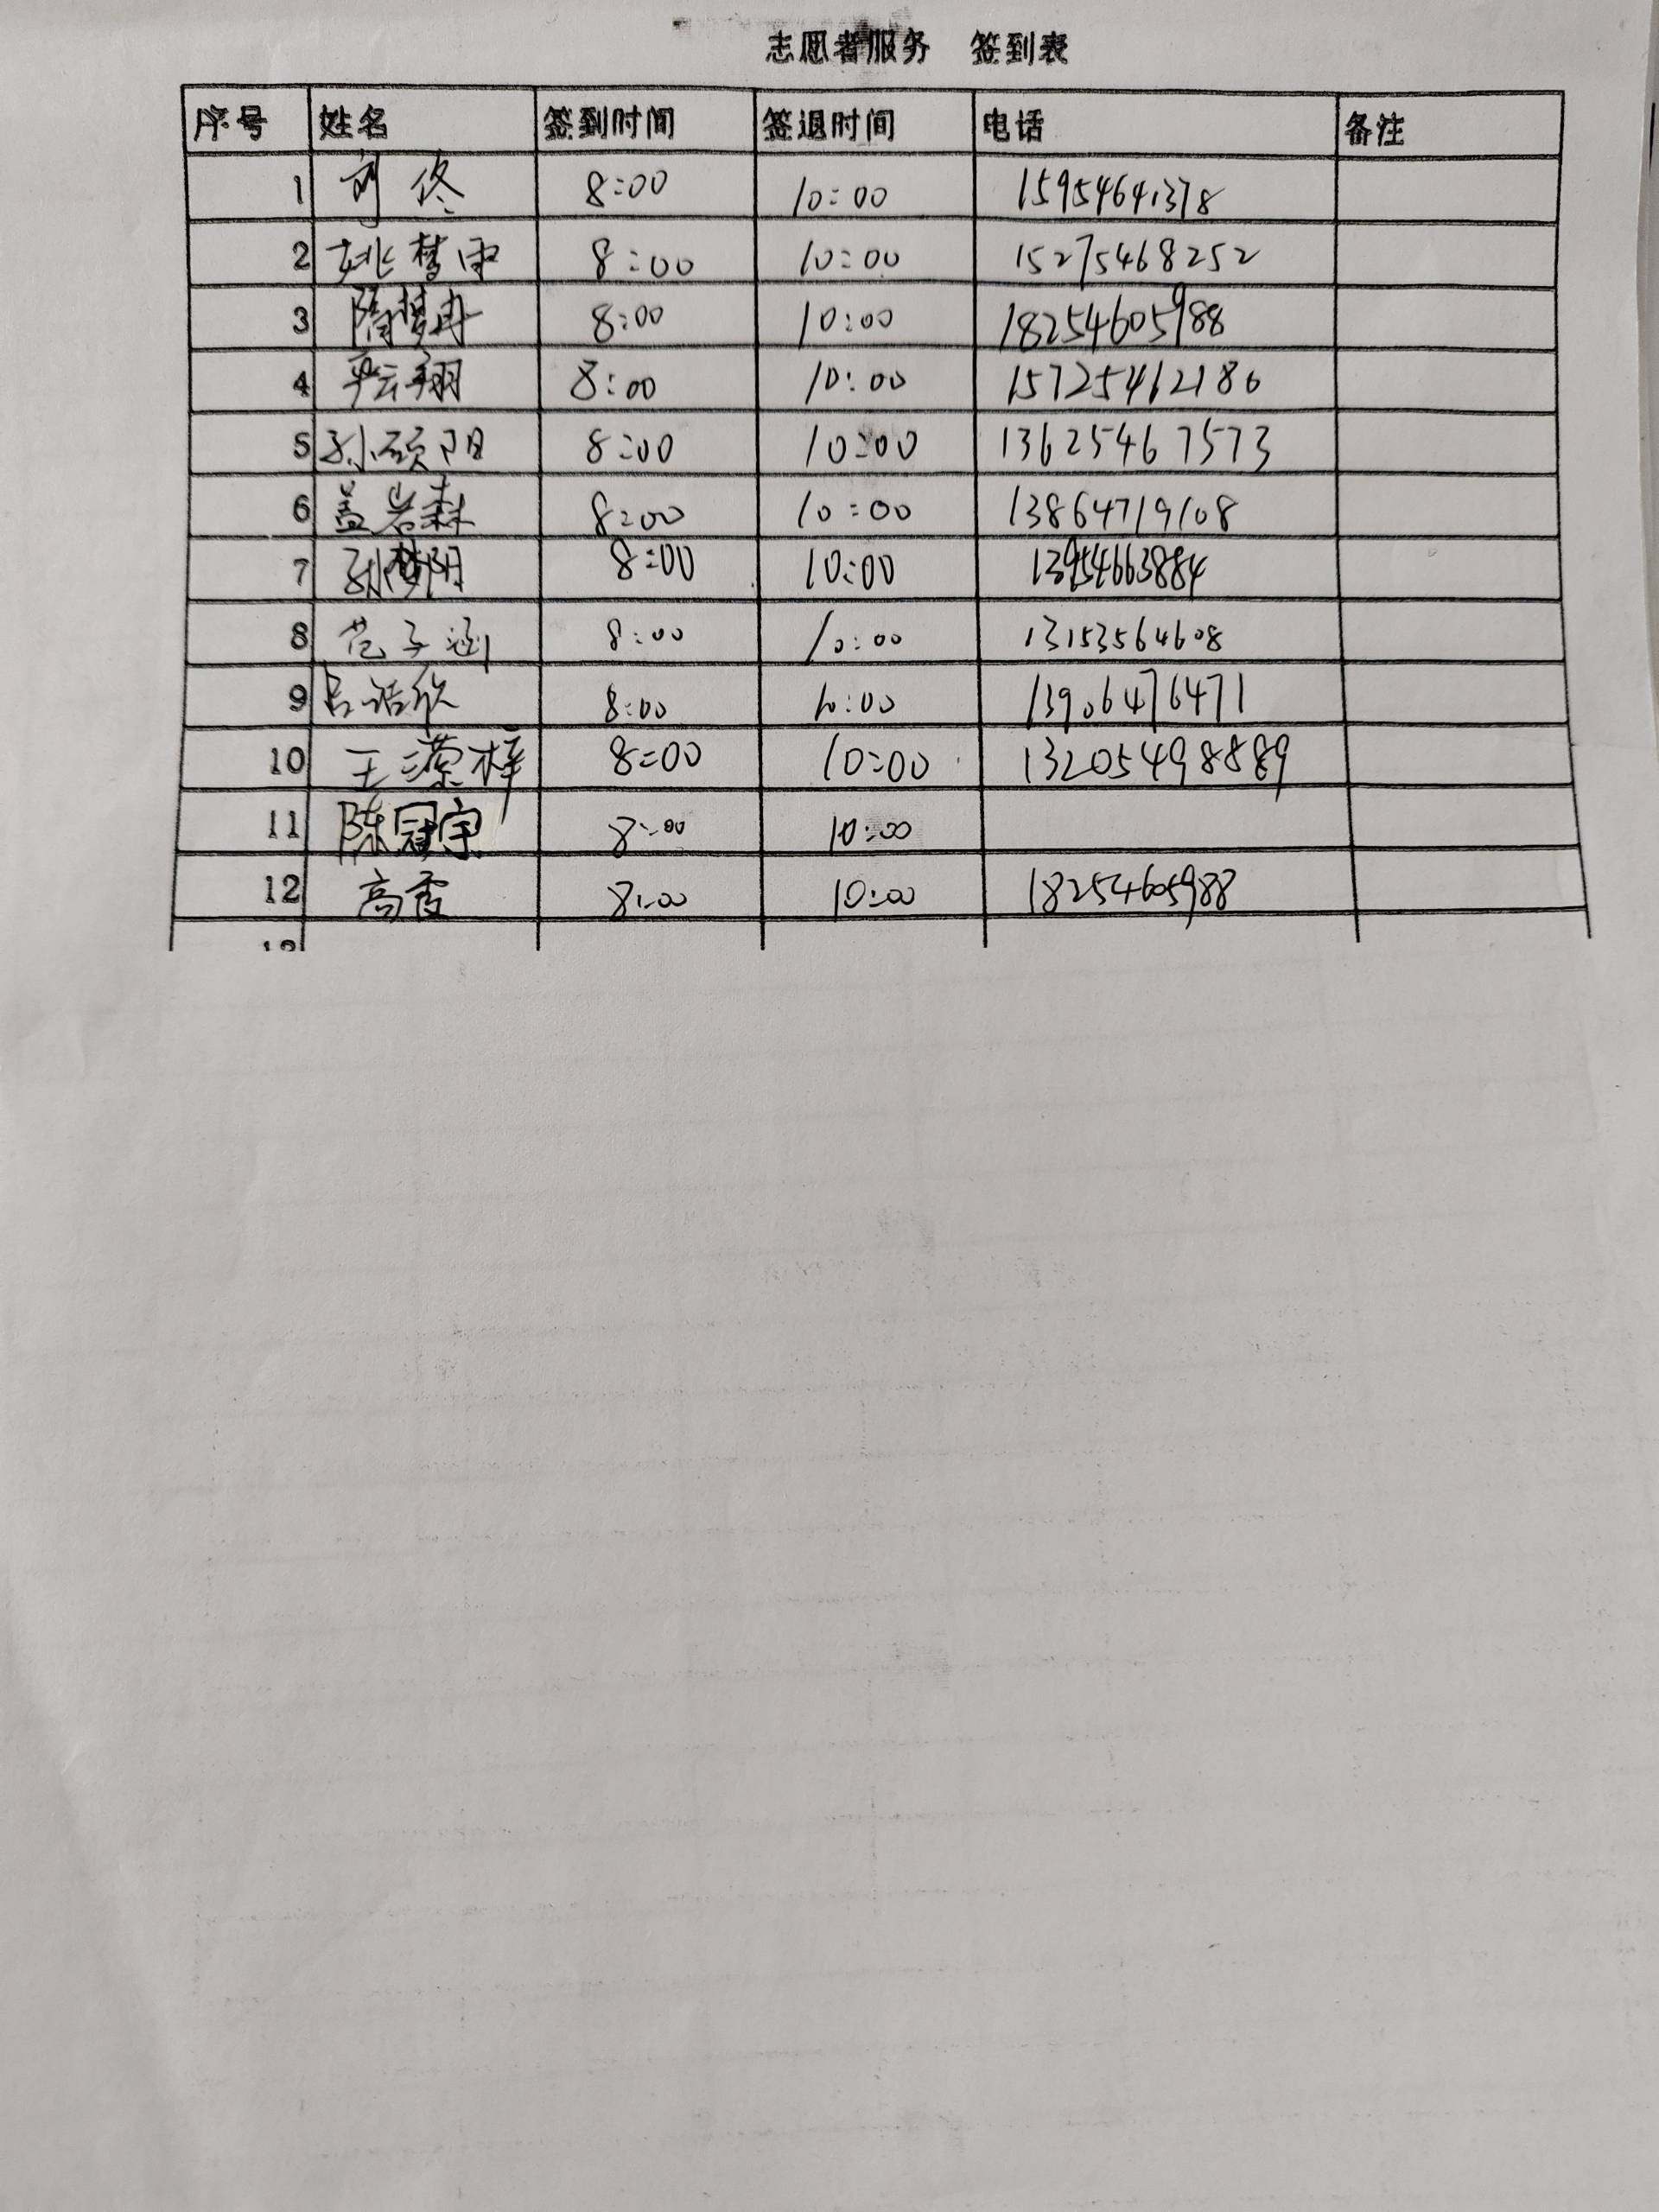 志愿者服务 签到表
序号 姓名 签到时间 签退时间 电话 备注
1 刘佟 8:00 10:00 15954641378
2 姚梦雨 8:00 10:00 15275468252
3 隋梦冉 8:00 10:00 18254605988
4 辛云翔 8:00 10:00 15725462186
5 孙硕阳 8:00 10:00 13625467573
6 盖岩森 8:00 10:00 13864719108
7 孙梦阳 8:00 10:00 13954663884
8 范子涵 8:00 10:00 13153564608
9 吕语欣 8:00 10:00 13906476471
10 王滢梓 8:00 10:00 13205498889
11 陈冠宇 8:00 10:00
12 高香 8:00 10:00 18254605988